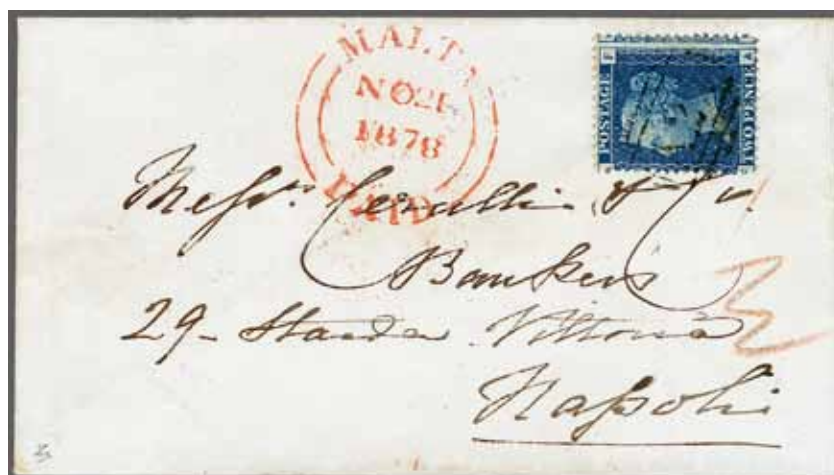 MALTA
NO 21
1878
PAID
POSTAGE
TWO PENCE
Messrs. Cerulli & Co.
Bankers
29 - Strada Vittoria
Napoli